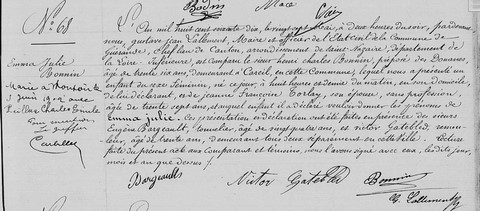 Bonin
Macé
N° 68
L'An mil huit cent soixante dix, le vingt sept Mai, à deux heures du soir, pardevant
nous, Gustave Jean Lallement, Maire et officier de l'Etat civil de la Commune de
Guérande, chef lieu de Canton, arrondissement de Saint Nazaire, département de
Emma Julie
la Loire Inférieure, est comparu le sieur Henri Charles Bonnin, préposé des Douanes,
Bonnin
âgé de trente six ans, demeurant à Careil, en cette Commune, lequel nous a présenté un
Marié à
enfant du sexe féminin, né ce jour, à huit heures et demie du matin, en son domicile,
de lui déclarant, et de Jeanne Françoise Torlay, son épouse, sans profession,
âgée de trente sept ans, et auquel enfant il a déclaré vouloir donner les prénoms de
Emma Julie. Ces présentation et déclaration ont été faites en présence des sieurs
Eugène Bargeault, tonnelier, âgé de vingt quatre ans, et Victor Gatebled,
âgé de trente ans, demeurant tous deux séparément en cette ville. Lecture
faite du présent acte aux Comparant et témoins, nous l'avons signé avec eux, les dits jour,
mois et an que dessus.
Bargeault
Victor Gatebled
Bonnin
G. Lallement